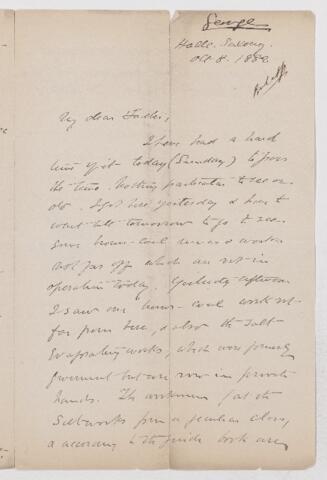 George
Halle. Saxony.
Oct 8. 1882.
My dear Father,
I have had a hard
time of it today (Sunday) to pass
the time. Nothing particular to see or
do. I got here yesterday & have to
wait till tomorrow to go to see
some brown-coal mines & works
not far off which are not in
operation today. Yesterday afternoon
I saw one brown-coal work not
far from here, & also the Salt
Evaporating works, which were formerly
government but are now in private
hands. The workmen (at the
Saltworks form a peculiar class,
& according to the guide book are